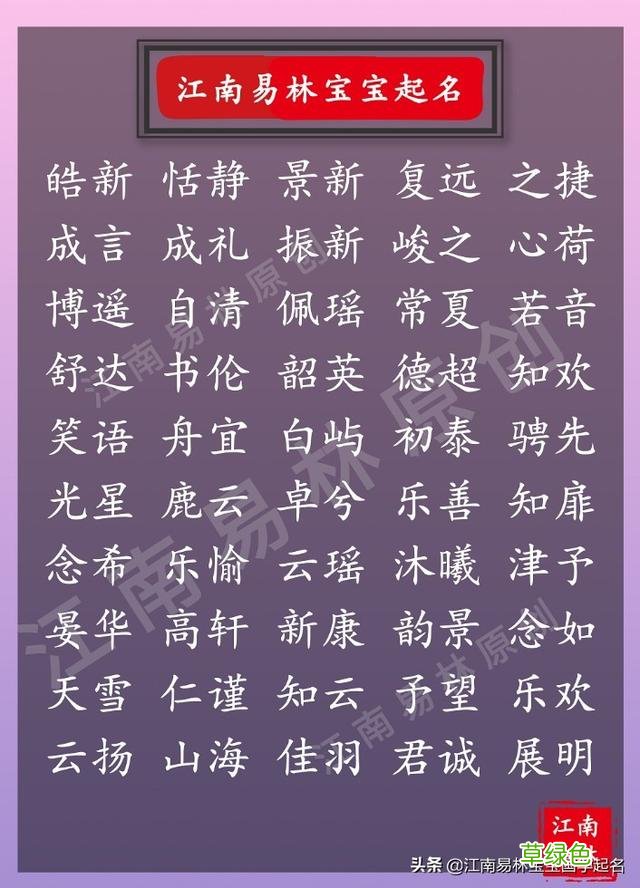 江南易林宝宝起名
皓新 恬静 景新 复远 之捷
成言 成礼 振新 峻之 心荷
博遥 自清 佩瑶 常夏 若音
舒达 书伦 韶英 德超 知欢
笑语 舟宜 白屿 初泰 骋先
光星 鹿云 卓兮 乐善 知扉
念希 乐愉 云瑶 沐曦 津予
晏华 高轩 新康 韵景 念如
天雪 仁谨 知云 予望 乐欢
云扬 山海 佳羽 君诚 展明
江南易林原创
江南易林原创
江南易林原创
江南
草绿色
头条 @江南易林宝宝国学起名